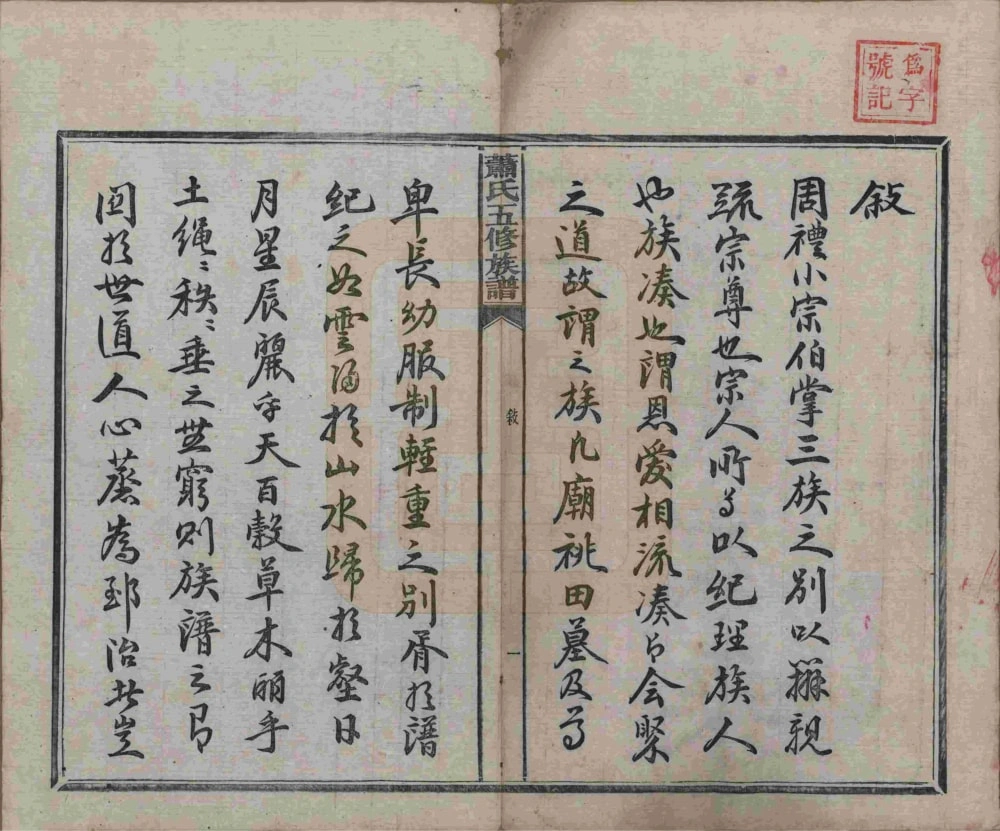 為字
號記
敘
周禮小宗伯掌三族之別以辨親
疏宗尊也宗人所以紀理族人
也族湊也謂恩愛相流湊有會聚
之道故謂之族凡廟祧田墓及
蕭氏五修族譜
敘
一
卑長幼服制輕重之別胥於譜
紀之如雲歸於山水歸於壑日
月星辰麗乎天百穀草木麗乎
土繩〻秩〻垂之無窮則族譜之有
關於世道人心蒸為郅治者豈